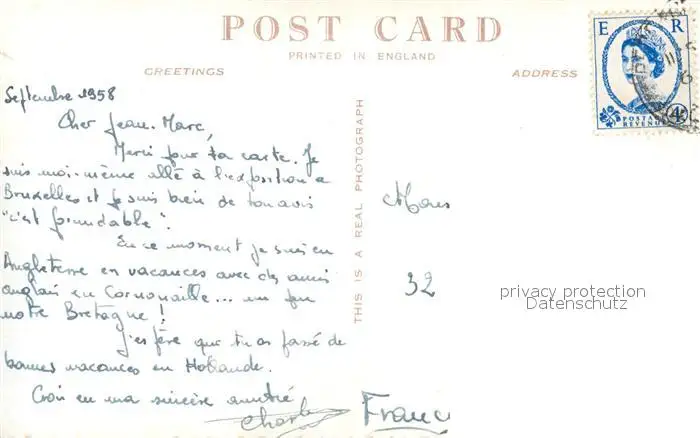 POST CARD
PRINTED IN ENGLAND
GREETINGS
ADDRESS
E R
POSTAGE
REVENUE
4D
Septembre 1958
Cher Jean-Marc,
Merci pour ta carte. Je
suis moi-même allé à l'exposition a
Bruxelles et je suis bien de ton avis
"c'est formidable".
En ce moment je suis en
Angleterre en vacances avec des amis
anglais en Cornouaille... un peu
notre Bretagne !
J'espère que tu as passé de
bonnes vacances en Hollande.
Crois en ma sincère amitié
Charles
THIS IS A REAL PHOTOGRAPH
32
France
privacy protection
Datenschutz